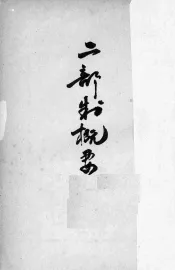 二部制概要